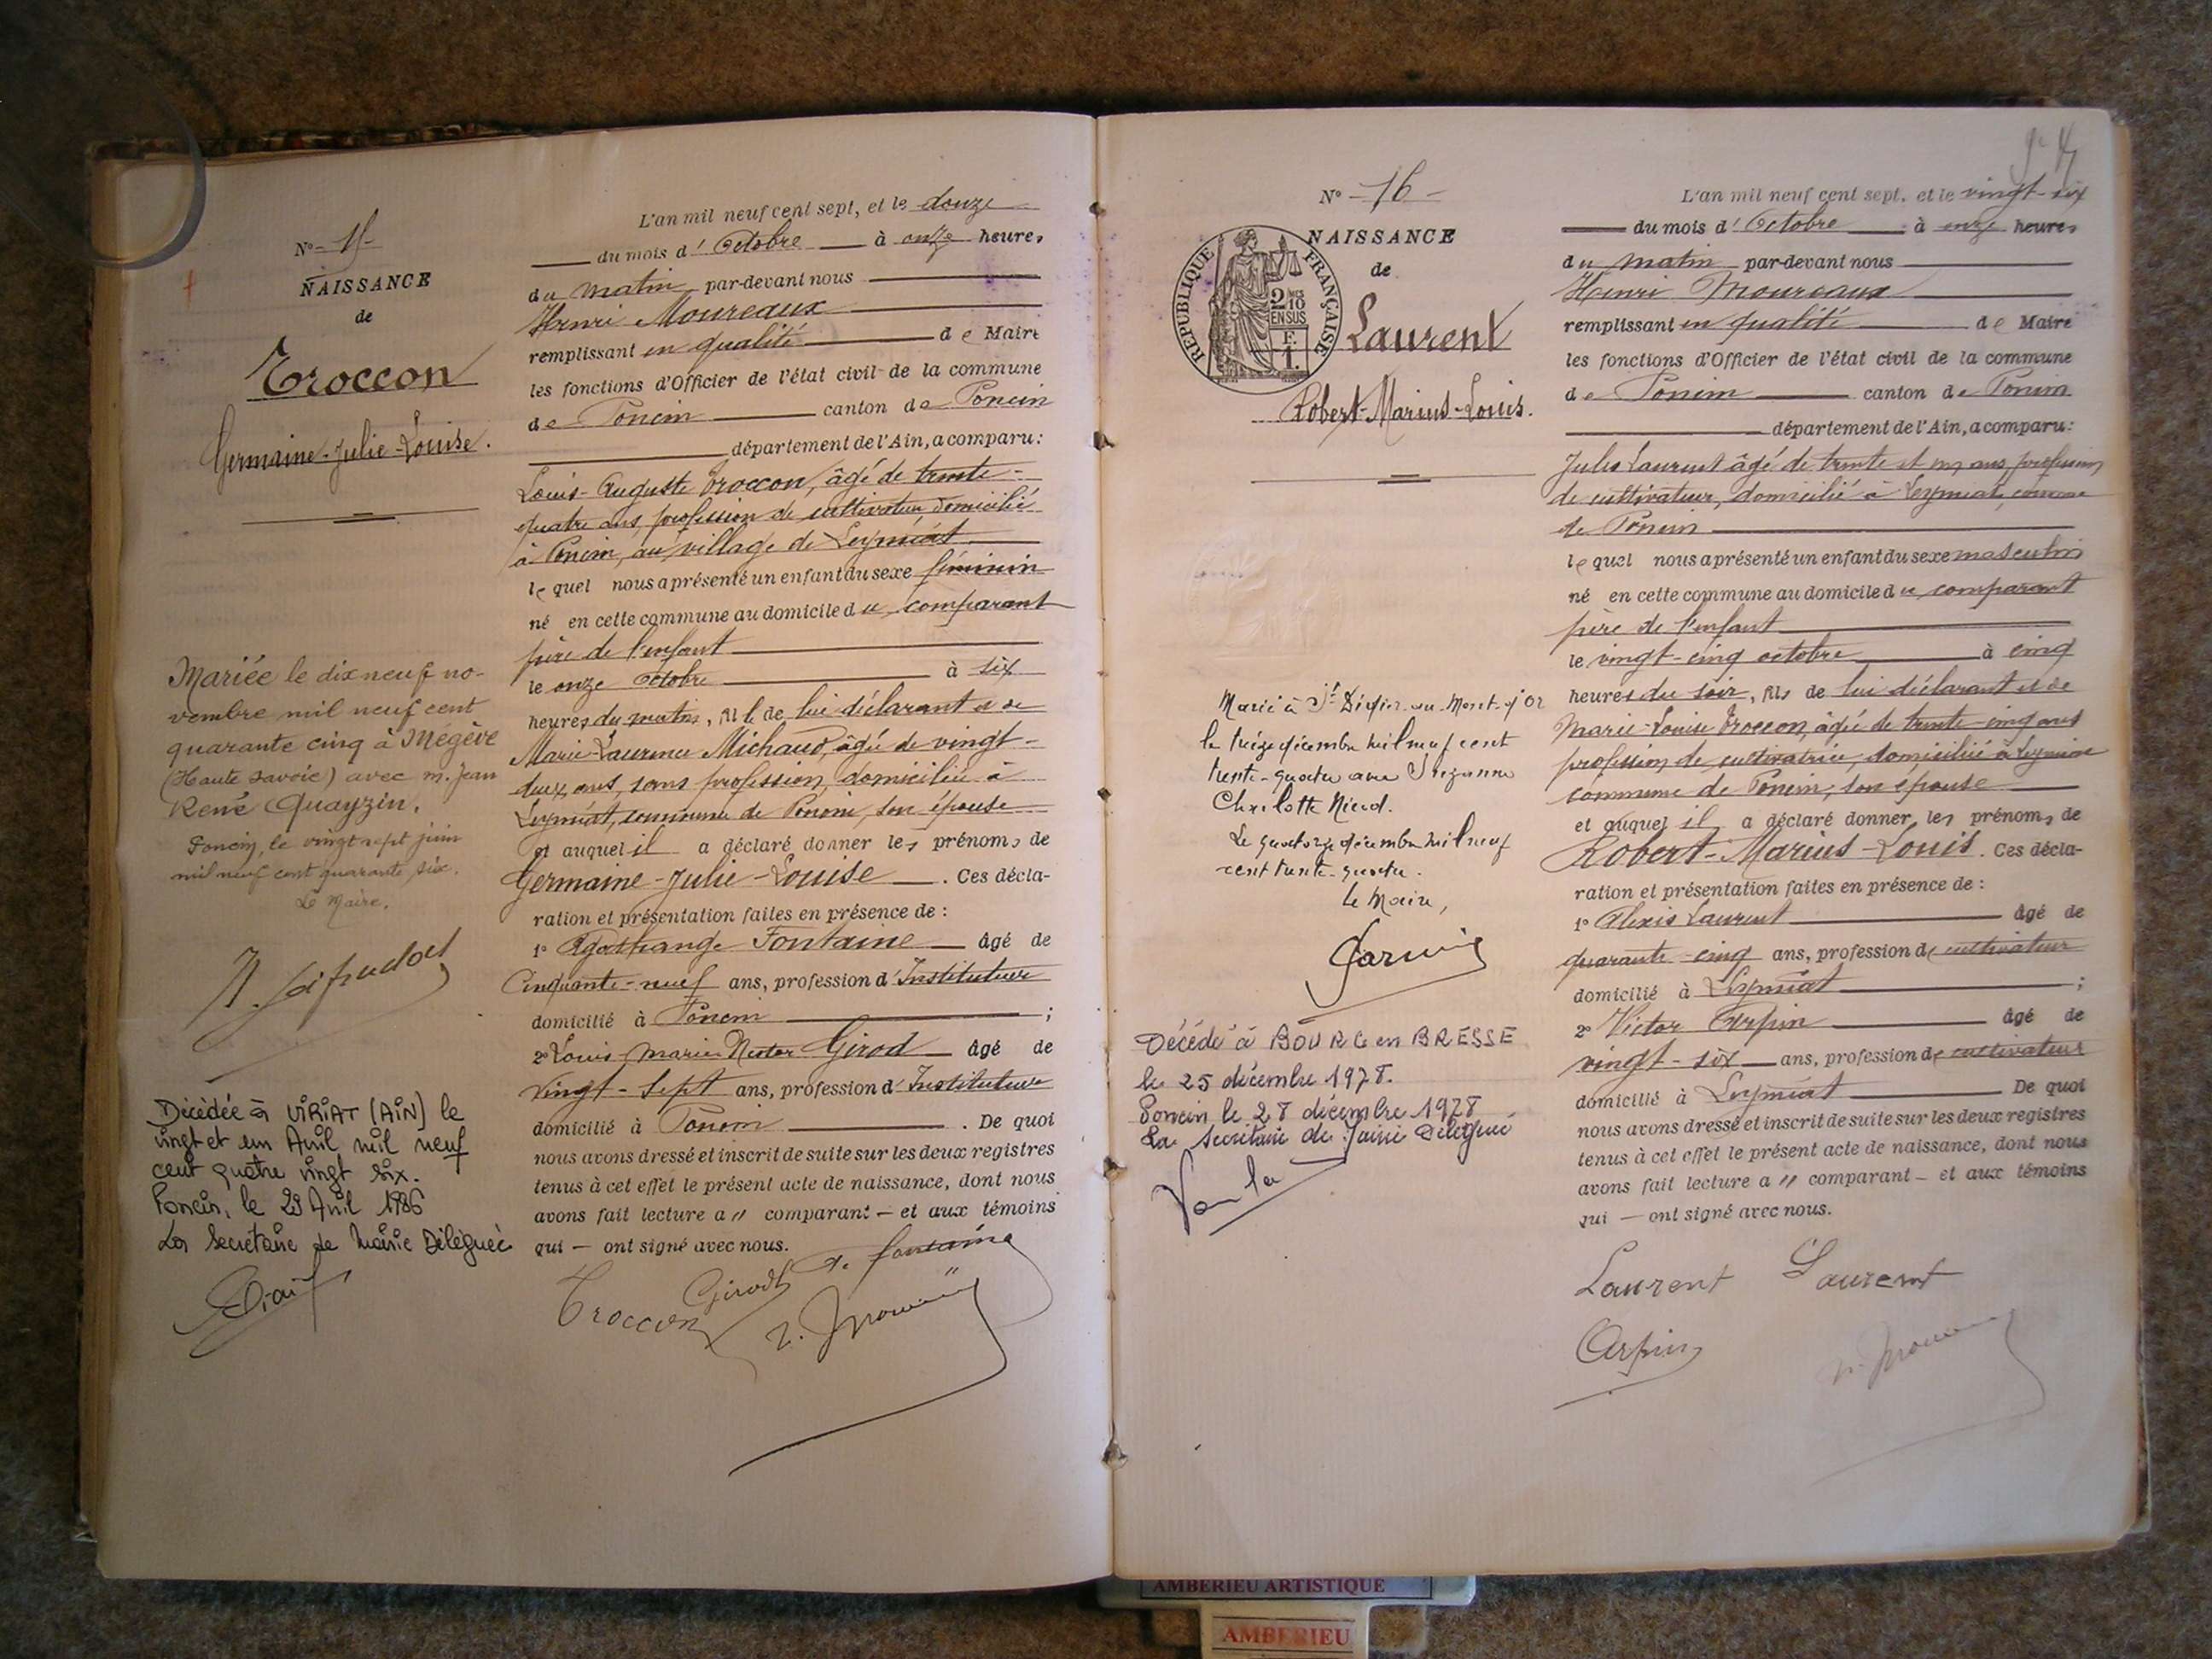 N° - 15 -
NAISSANCE
de
Troccon
Germaine-Julie-Louise.
Mariée le dix neuf no-
vembre mil neuf cent
quarante cinq à Mégève
(Haute Savoie) avec m. Jean
René Quayzin.
Poncin, le vingt sept juin
mil neuf cent quarante six.
Le Maire,
Décédée à VIRIAT (AIN) le
vingt et un Avril mil neuf
cent quatre vingt six.
Poncin, le 29 Avril 1986
La Secrétaire de Mairie Déléguée
L'an mil neuf cent sept, et le douze
du mois d'Octobre à onze heures
du matin par-devant nous
Henri Moureaux
remplissant en qualité de Maire
les fonctions d'Officier de l'état civil de la commune
de Poncin canton de Poncin
département de l'Ain, a comparu:
Louis-Auguste Troccon, âgé de trente-
quatre ans, profession de cultivateur, domicilié
à Poncin, au village de Leymiat
lequel nous a présenté un enfant du sexe féminin
né en cette commune au domicile du comparant
père de l'enfant
le onze octobre à six
heures du matin, fille de lui déclarant et de
Marie-Laurence Michaud, âgée de vingt-
deux ans, sans profession, domiciliée à
Leymiat, commune de Poncin, son épouse
et auquel il a déclaré donner les prénoms de
Germaine-Julie-Louise. Ces décla-
ration et présentation faites en présence de :
1° Agathange Fontaine âgé de
Cinquante-neuf ans, profession d'Instituteur
domicilié à Poncin ;
2° Louis Marie Nestor Girod âgé de
vingt-sept ans, profession d'Instituteur
domicilié à Poncin. De quoi
nous avons dressé et inscrit de suite sur les deux registres
tenus à cet effet le présent acte de naissance, dont nous
avons fait lecture a // comparant - et aux témoins
qui - ont signé avec nous.
Girod A. Fontaine
Troccon
N° - 16 -
NAISSANCE
de
RÉPUBLIQUE FRANÇAISE
2 MES
10
EN SUS
F.
1.
Laurent
Robert-Marius-Louis.
Marié à St Didier-au-Mont-d'Or
le treize décembre mil neuf cent
trente-quatre avec Suzanne
Charlotte
Le quatorze décembre mil neuf
cent trente-quatre.
Le Maire,
Décédé à BOURG en BRESSE
le 25 décembre 1978.
Poncin le 28 décembre 1978
La Secrétaire de Mairie Déléguée
L'an mil neuf cent sept, et le vingt-six
du mois d'Octobre à onze heures
du matin par-devant nous
Henri Moureaux
remplissant en qualité de Maire
les fonctions d'Officier de l'état civil de la commune
de Poncin canton de Poncin
département de l'Ain, a comparu:
Jules Laurent âgé de trente et un ans, profession
de cultivateur, domicilié à Leymiat, commune
de Poncin
lequel nous a présenté un enfant du sexe masculin
né en cette commune au domicile du comparant
père de l'enfant
le vingt-cinq octobre à cinq
heures du soir, fils de lui déclarant et de
Marie-Louise Troccon, âgée de trente-cinq ans
profession de cultivatrice, domiciliée à Leymiat
commune de Poncin, son épouse
et auquel il a déclaré donner les prénoms de
Robert-Marius-Louis. Ces décla-
ration et présentation faites en présence de :
1° Alexis Laurent âgé de
quarante-cinq ans, profession de cultivateur
domicilié à Leymiat ;
2° Victor Arpin âgé de
vingt-six ans, profession de cultivateur
domicilié à Leymiat De quoi
nous avons dressé et inscrit de suite sur les deux registres
tenus à cet effet le présent acte de naissance, dont nous
avons fait lecture a // comparant - et aux témoins
qui - ont signé avec nous.
Laurent Laurent
Arpin
AMBERIEU ARTISTIQUE
AMBERIEU